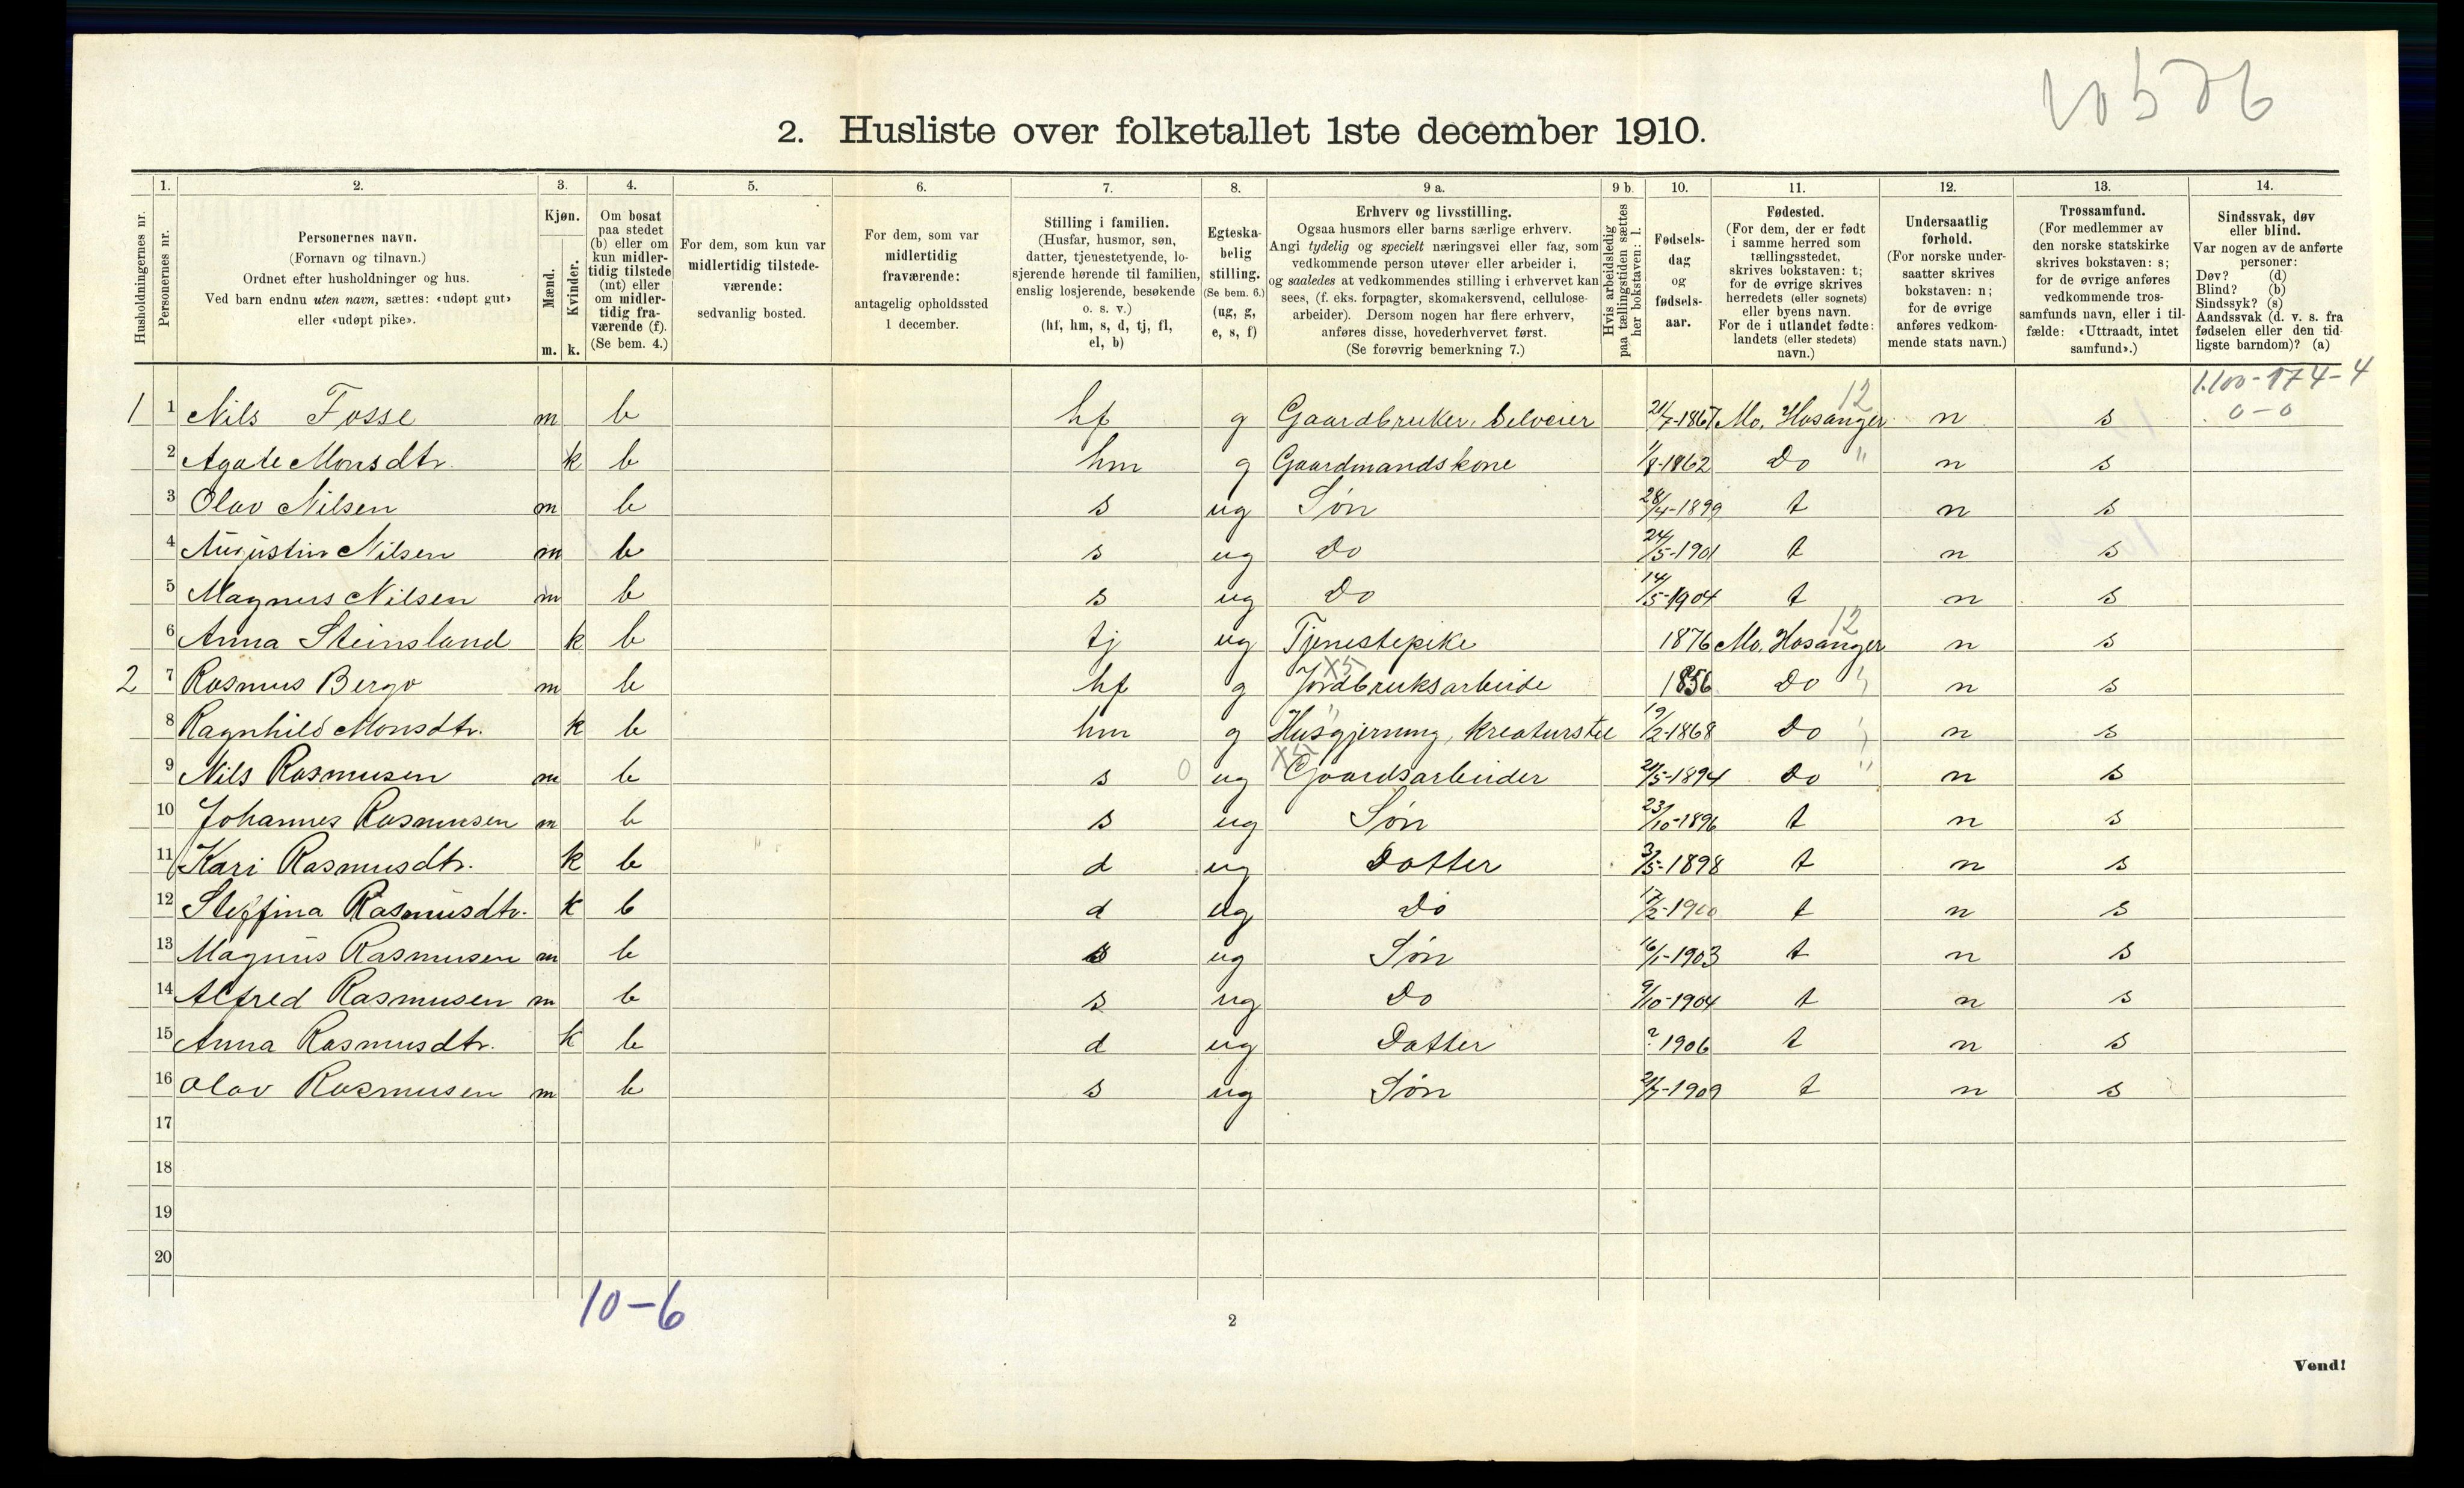 10526
2. Husliste over folketallet 1ste december 1910.
1. 2. 3. 4. 5. 6. 7. 8. 9 a. 9 b. 10. 11. 12. 13. 14.
Husholdningernes nr.
Personernes nr.
Personernes navn.
(Fornavn og tilnavn.)
Ordnet efter husholdninger og hus.
Ved barn endnu uten navn, sættes: «udøpt gut»
eller «udøpt pike».
Kjøn.
Mænd.
Kvinder.
m. k.
Om bosat
paa stedet
(b) eller om
kun midler-
tidig tilstede
(mt) eller
om midler-
tidig fra-
værende (f).
(Se bem. 4.)
For dem, som kun var
midlertidig tilstede-
værende:
sedvanlig bosted.
For dem, som var
midlertidig
fraværende:
antagelig opholdssted
1 december.
Stilling i familien.
(Husfar, husmor, søn,
datter, tjenestetyende, lo-
sjerende hørende til familien,
enslig losjerende, besøkende
o. s. v.)
(hf, hm, s, d, tj, fl,
el, b)
Egteska-
belig
stilling.
(Se bem. 6.)
(ug, g,
e, s, f)
Erhverv og livsstilling.
Ogsaa husmors eller barns særlige erhverv.
Angi tydelig og specielt næringsvei eller fag, som
vedkommende person utøver eller arbeider i,
og saaledes at vedkommendes stilling i erhvervet kan
sees, (f. eks. forpagter, skomakersvend, cellulose-
arbeider). Dersom nogen har flere erhverv,
anføres disse, hovederhvervet først.
(Se forøvrig bemerkning 7.)
Hvis arbeidsledig
paa tællingstiden sættes
her bokstaven: l.
Fødsels-
dag
og
fødsels-
aar.
Fødested.
(For dem, der er født
i samme herred som
tællingsstedet,
skrives bokstaven: t;
for de øvrige skrives
herredets (eller sognets)
eller byens navn.
For de i utlandet fødte:
landets (eller stedets)
navn.)
Undersaatlig
forhold.
(For norske under-
saatter skrives
bokstaven: n;
for de øvrige
anføres vedkom-
mende stats navn.)
Trossamfund.
(For medlemmer av
den norske statskirke
skrives bokstaven: s;
for de øvrige anføres
vedkommende tros-
samfunds navn, eller i til-
fælde: «Uttraadt, intet
samfund».)
Sindssvak, døv
eller blind.
Var nogen av de anførte
personer:
Døv? (d)
Blind? (b)
Sindssyk? (s)
Aandssvak (d. v. s. fra
fødselen eller den tid-
ligste barndom)? (a)
1.100-174-4
0-0
1 1 Nils Fosse m b hf g Gaardbruker, Selveier 21/7-1867 Mo, Hosanger 12 n s
2 Agate Monsdtr. k b hm g Gaardmandskone 1/8-1862 Do " n s
3 Olav Nilsen m b s ug Søn 28/4-1899 t n s
4 Augustin Nilsen m b s ug Do 24/5-1901 t n s
5 Magnus Nilsen m b s ug Do 14/5-1904 t n s
6 Anna Steinsland k b tj ug Tjenestepike 1876 Mo, Hosanger 12 n s
2 7 Rasmus Bergo m b hf g Jordbruksarbeide 1856 Do " n s
8 Ragnhild Monsdtr. k b hm g Husgjerning, kreaturstel 19/2-1868 Do " n s
9 Nils Rasmusen m b s 0 ug Gaardsarbeider 21/5-1894 Do " n s
10 Johannes Rasmusen m b s ug Søn 23/10-1896 t n s
11 Kari Rasmusdtr. k b d ug Datter 3/5-1898 t n s
12 Steffina Rasmusdtr. k b d ug Do 17/2-1900 t n s
13 Magnus Rasmusen m b s ug Søn 16/1-1903 t n s
14 Alfred Rasmusen m b s ug Do 9/10-1904 t n s
15 Anna Rasmusdtr. k b d ug Datter ? 1906 t n s
16 Olav Rasmusen m b s ug Søn 21/7-1909 t n s
17
18
19
20
10-6
2
Vend!